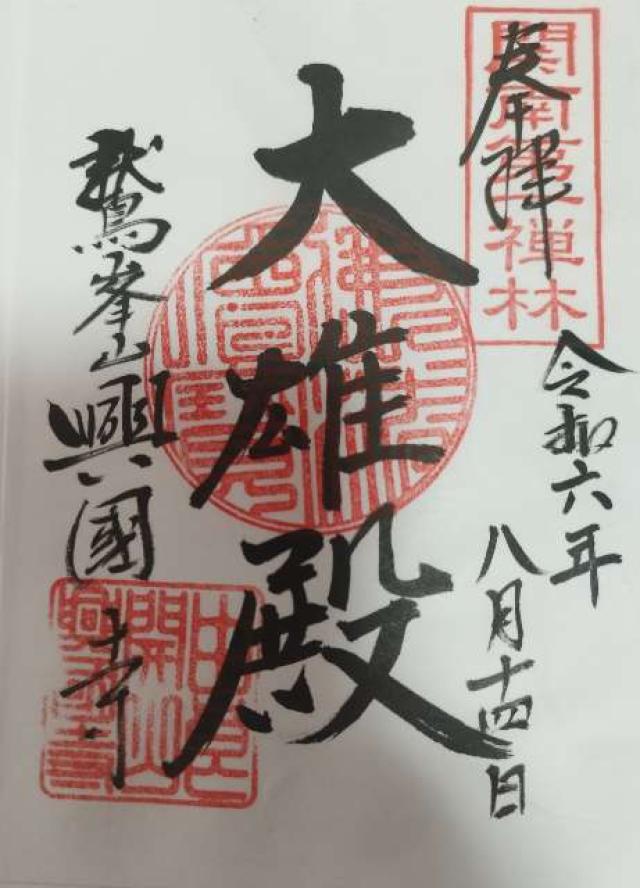 奉拝
関南第一禅林
令和六年
八月十四日
大雄殿
佛法僧寶
鷲峯山
興國寺